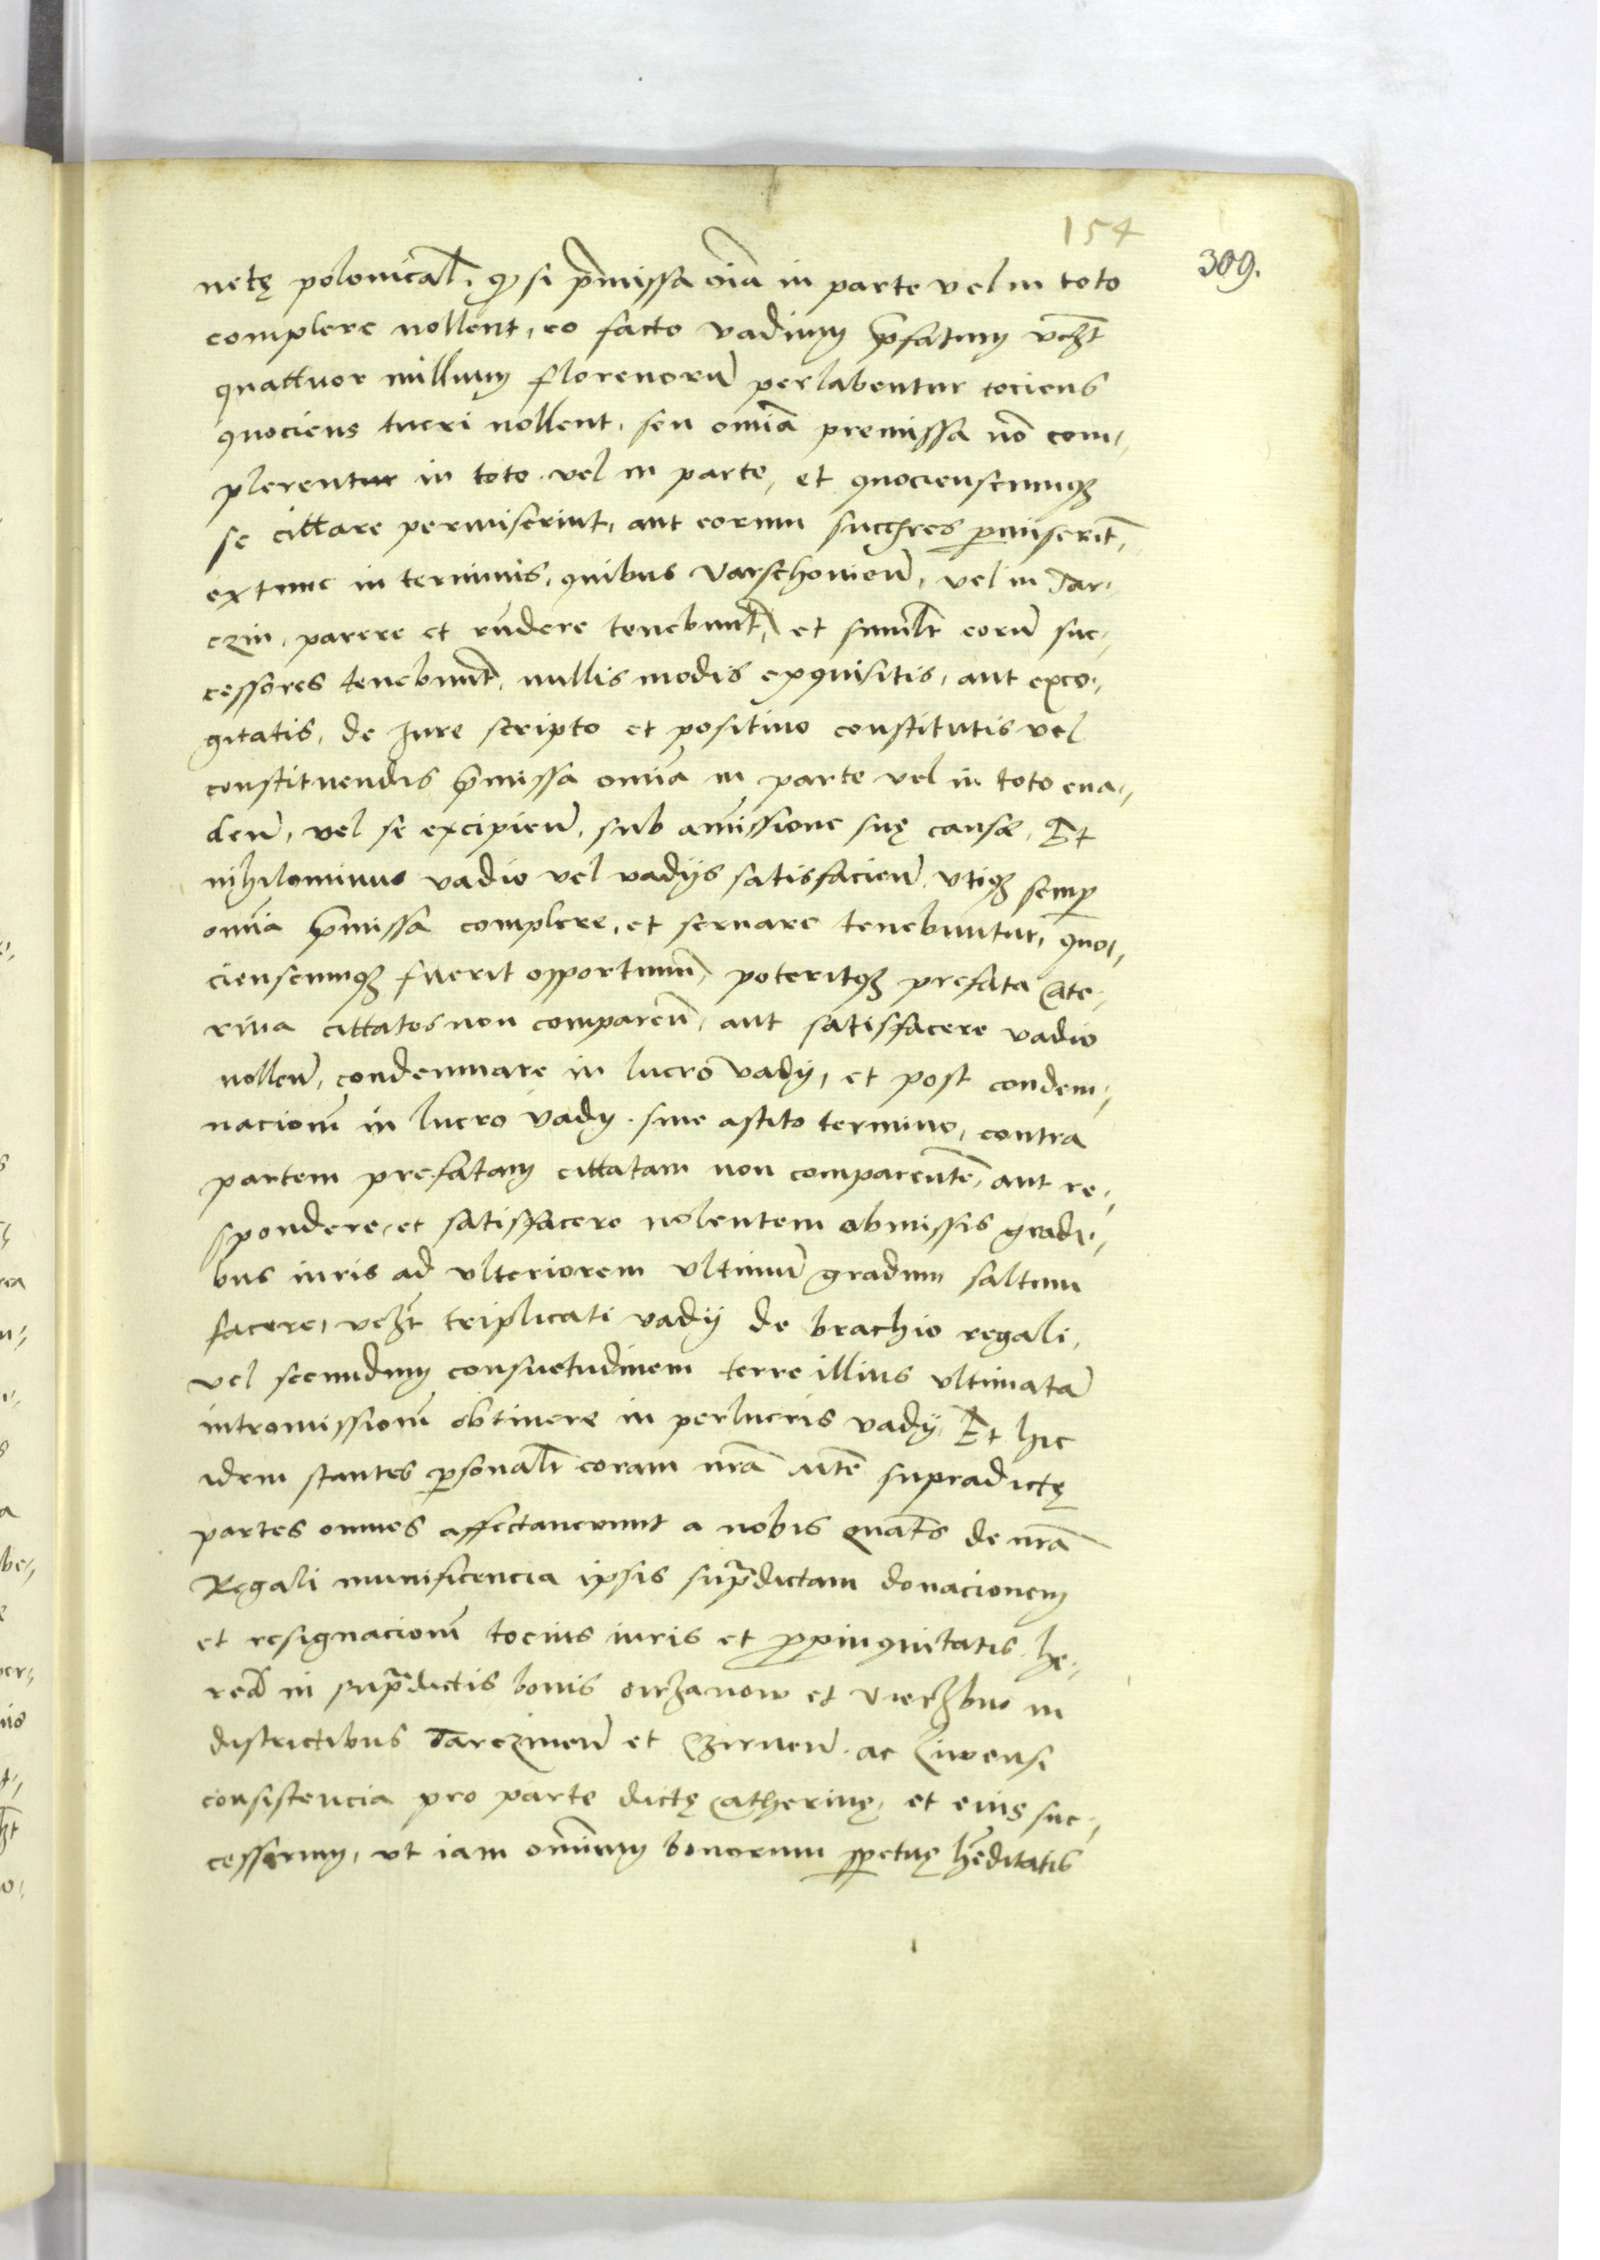 154
309.
netę polonical̄. qͦ si p̄missa oīa in parte vel in toto
complere nollent, eo facto vadium p̄fatum vcʒt
quattuor millium florenorū perlabentur tociens
quociens tueri nollent, seu om̄ia premissa nō com,,
plerentur in toto vel in parte, et quocienscumqʒ
se cittare permiserint, aut eorum succʃres p̱miserīt,
extunc in terminis, quibus Varschouien̄, vel in Tar,,
czin, parere et rn̄dere tenebunt᷑, et simil̄r eorū suc,,
cessores tenebunt᷑, nullis modis exquisitis, aut exco,,
gitatis, de Jure scripto et positiuo constitutis vel
constituendis p̄missa om̄ia in parte vel in toto eua,,
den̄, vel se excipien̄, sub amissione suę causæ, Et
nihilominus vadio vel vadijs satisfacien̄ vtiqʒ semp̱
om̄ia p̄missa complere, et seruare tenebuntur, quo,,
cienscumqʒ fuerit opportunū, poteritqʒ prefata Cate,,
rina cittatos non comparen̄, aut satisfacere vadio
nollen̄, condemnare in lucro vadij, et post condem,,
nacionē in lucro vadij. sine astito termino, contra
partem prefatam cittatam non comparentē, aut re,,
spondere, et satisfacere nolentem obmissis gradi,,
bus iuris ad vlteriorem vltimū gradum saltum
facere, vcʒt triplicati vadij de brachio regali,
vel secundum consuetudinem terre illius vltimatā
intromissionē obtinere in perlucris vadij, Et hic
idem stantes p̱sonal̄r coram nrā Mtē supradictę
partes omnes affectauerunt a nobis quat̄s de nrā
Regali munificencia ipsis sup̄dictam donacionem
et resignacionē tocius iuris et p̱pinquitatis he,,
red̄ in sup̄dictis bonis oirʒanow et Vierʒbno in
districtibus Tarczinen̄ et Czirnen̄. ac Liwensi
consistencia pro parte dictę Catherinę, et eius suc,,
cessorum, vt iam omnium bonorum p̱petuę hēditatis